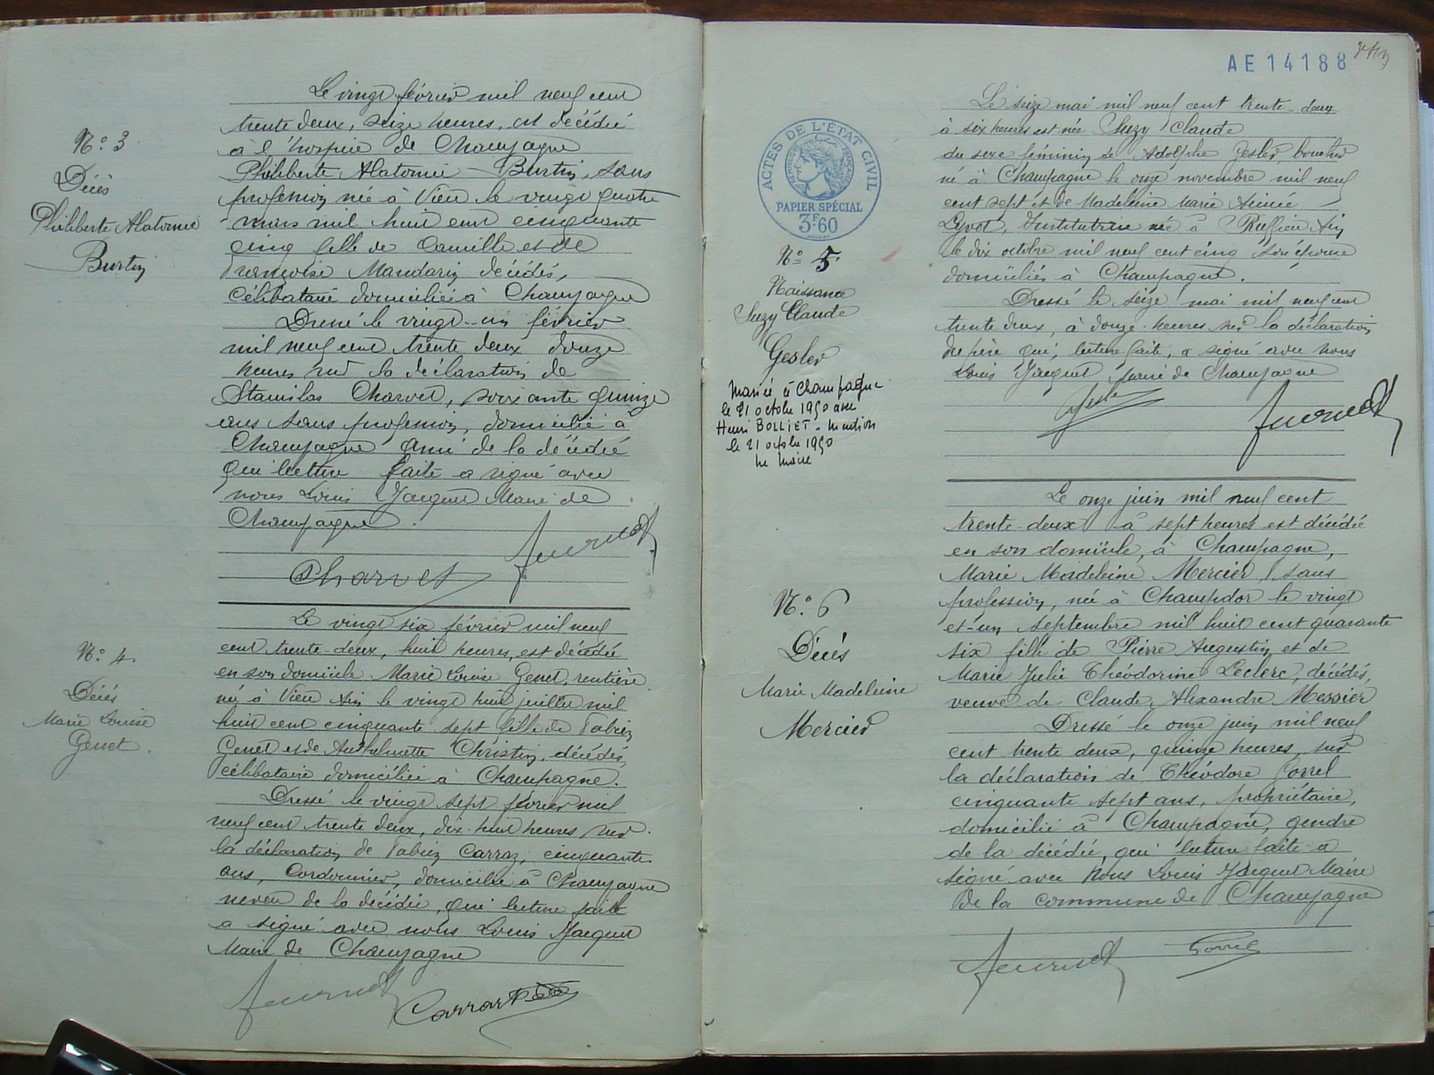 N° 3
Décès
Philiberte Alatornie
Burtin
Le vingt février mil neuf cent
trente deux, seize heures, est décédé
à l'hospice de Champagne
Philiberte Alatornie Burtin, sans
profession née à Vieu le vingt quatre
mars mil huit cent cinquante
cinq fille de Camille et de
Françoise Mandarin décédés,
célibataire domiciliée à Champagne
Dressé le vingt-un février
mil neuf cent trente deux douze
heures sur la déclaration de
Stanislas Charvet, soixante quinze
ans sans profession, domicilié à
Champagne ami de la décédée
qui lecture faite a signé avec
nous Louis Jacquet Maire de
Champagne.
Charvet
N° 4.
Décès
Marie Louise
Genet.
Le vingt six février mil neuf
cent trente-deux, huit heures, est décédée
en son domicile Marie Louise Genet, rentière
née à Vieu Ain le vingt huit juillet mil
huit cent cinquante sept fille de Fabien
Genet et de Anthelmette Christin, décédés,
célibataire domiciliée à Champagne.
Dressé le vingt sept février mil
neuf cent trente deux, dix-huit heures sur
la déclaration de Fabien Carraz, cinquante
ans, Cordonnier, domicilié à Champagne
neveu de la décédée, qui lecture faite
a signé avec nous Louis Jacquet
Maire de Champagne
AE 14188
ACTES DE L'ÉTAT CIVIL
PAPIER SPÉCIAL
3F60
N° 5
Naissance
Suzy Claude
Gesler
Mariée à Champagne
le 21 octobre 1950 avec
Henri BOLLIET - Mention
le 21 octobre 1950
le Maire
Le seize mai mil neuf cent trente-deux
à six heures est née Suzy Claude
du sexe féminin de Adolphe Gesler, boucher
né à Champagne le onze novembre mil neuf
cent sept et de Madeleine Marie Aimée
Institutrice née à Ruffieu Ain
le dix octobre mil neuf cent cinq son épouse
domiciliés à Champagne.
Dressé le seize mai mil neuf cent
trente deux, à douze heures sur la déclaration
du père qui, lecture faite, a signé avec nous
Louis Jacquet, maire de Champagne
N° 6
Décès
Marie Madeleine
Mercier
Le onze juin mil neuf cent
trente-deux à sept heures est décédée
en son domicile, à Champagne,
Marie Madeleine Mercier, sans
profession, née à Champdor le vingt
et-un septembre mil huit cent quarante
six fille de Pierre Augustin et de
Marie Julie Théodorine Leclerc, décédés,
veuve de Claude Alexandre Messier
Dressé le onze juin mil neuf
cent trente deux, quinze heures, sur
la déclaration de Théodore Gorrel
cinquante sept ans, propriétaire,
domicilié à Champagne, gendre
de la décédée, qui lecture faite a
signé avec Nous Louis Jacquet Maire
de la commune de Champagne